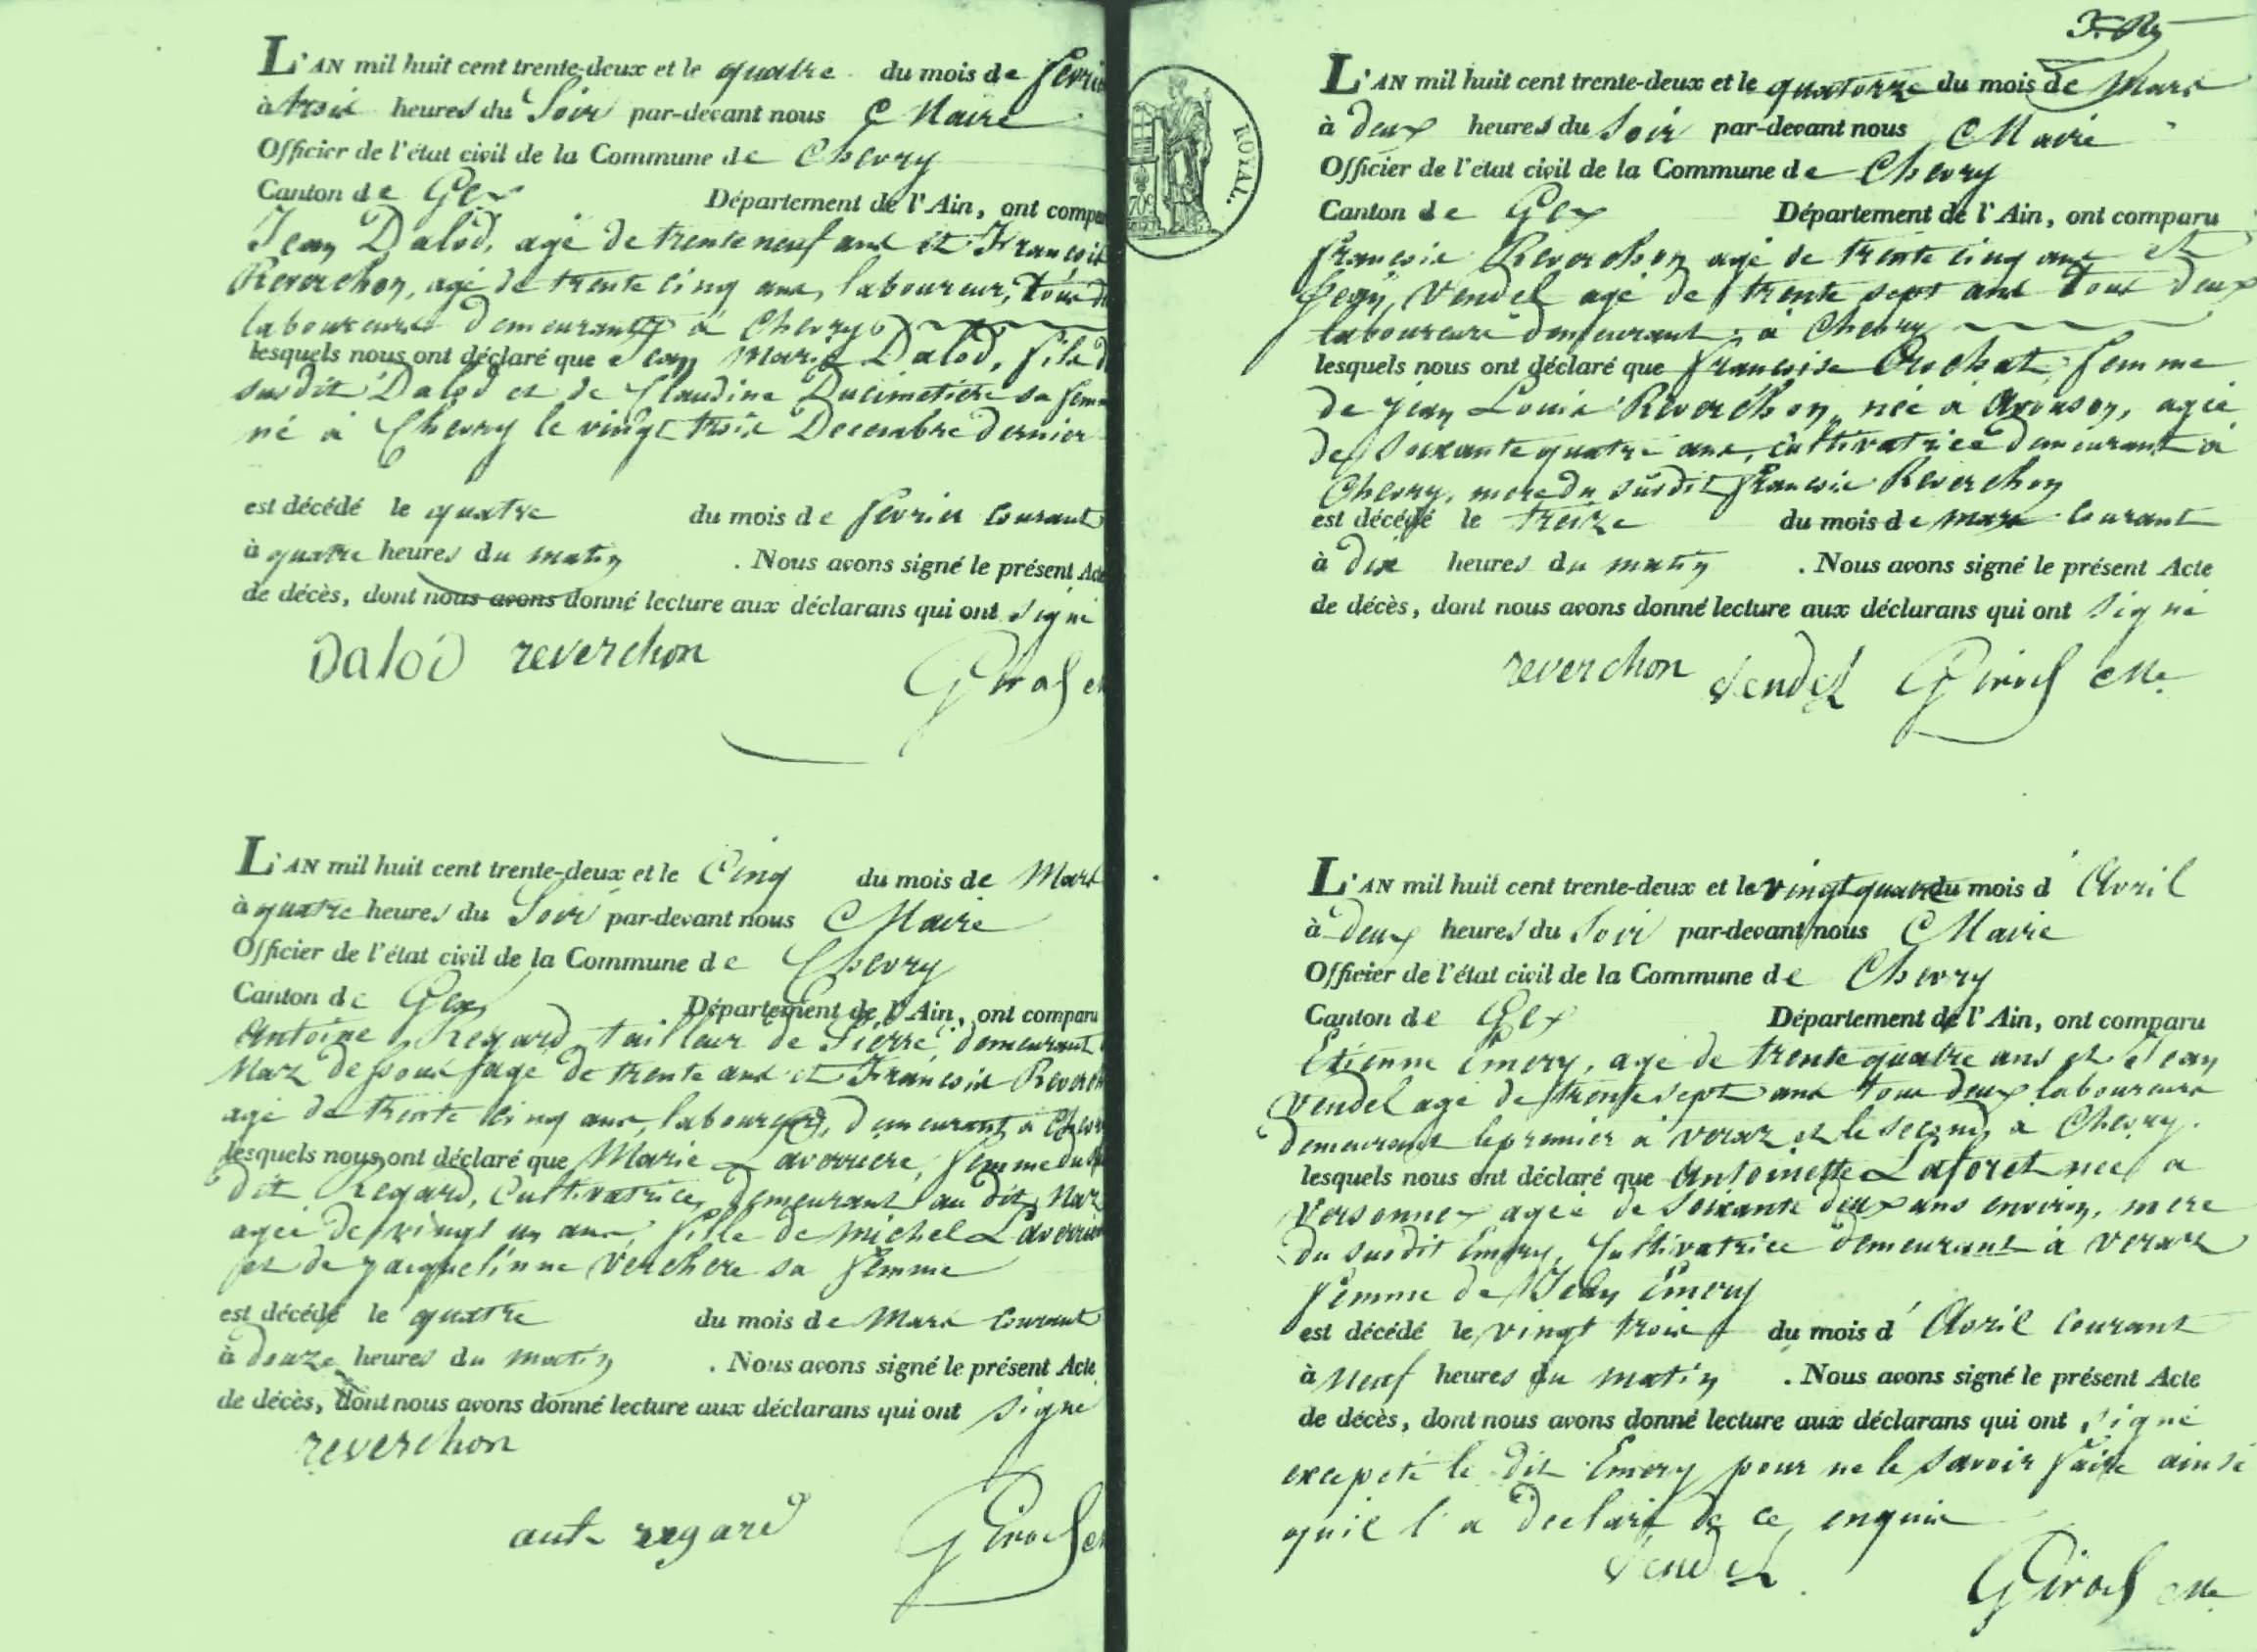 L'AN mil huit cent trente-deux et le quatre du mois de fevrie
à trois heures du Soir par-devant nous Maire
Officier de l'état civil de la Commune de Chevry
Canton de Gex Département de l'Ain, ont compa
Jean Dalod, agé de trente neuf ans et François
Reverchon, agé de trente cinq ans, laboureur, tous d
laboureurs demeurants à Chevry
lesquels nous ont déclaré que Jean Marie Dalod, fils d
susdit Dalod et de Claudine Ducimetière sa femm
né à Chevry le vingt trois Decembre dernier
est décédé le quatre du mois de fevrier courant
à quatre heures du matin . Nous avons signé le présent Acte
de décès, dont nous avons donné lecture aux déclarans qui ont signé
Dalod reverchon
Girod
L'AN mil huit cent trente-deux et le Cinq du mois de Mars
à quatre heures du Soir par-devant nous Maire
Officier de l'état civil de la Commune de Chevry
Canton de Gex Département de l'Ain, ont comparu
Antoine Regard, tailleur de Pierre, demeurant
Naz dessous agé de trente ans et François Reverch
agé de trente cinq ans, laboureur, demeurant à Chevr
lesquels nous ont déclaré que Marie Laverriere, femme du
dit Regard, Cultivatrice, demeurant au dit Naz
agée de vingt un ans, fille de michel Laverrier
et de jacquelinne Verchere sa femme
est décédé le quatre du mois de Mars courant
à douze heures du matin . Nous avons signé le présent Acte
de décès, dont nous avons donné lecture aux déclarans qui ont signé
reverchon
ant regard
Girod
ROYAL.
L'AN mil huit cent trente-deux et le quatorze du mois de Mars
à deux heures du Soir par-devant nous Maire
Officier de l'état civil de la Commune de Chevry
Canton de Gex Département de l'Ain, ont comparu
françois Reverchon agé de trente cinq ans et
Jean, Vendel agé de trente sept ans tous deux
laboureurs demeurant à Chevry
lesquels nous ont déclaré que françoise Crochat, femme
de jean Louis Reverchon, née à Avouson, agée
de soixante quatre ans, cultivatrice demeurant à
Chevry, mere du susdit françois Reverchon
est décédé le treize du mois de mars courant
à dix heures du matin . Nous avons signé le présent Acte
de décès, dont nous avons donné lecture aux déclarans qui ont signé
reverchon Vendel Girod Me
L'AN mil huit cent trente-deux et le vingt quatre du mois d' Avril
à deux heures du Soir par-devant nous Maire
Officier de l'état civil de la Commune de Chevry
Canton de Gex Département de l'Ain, ont comparu
Etienne Emery, agé de trente quatre ans et Jean
Vendel agé de trente sept ans tous deux laboureurs
demeurant le premier à Veraz et le second à Chevry.
lesquels nous ont déclaré que Antoinette Laforet née à
Versonnex agée de soixante deux ans environ, mere
du susdit Emery, Cultivatrice demeurant à Veraz
femme de Jean Emery
est décédé le vingt trois du mois d' Avril courant
à Neuf heures du matin . Nous avons signé le présent Acte
de décès, dont nous avons donné lecture aux déclarans qui ont signé
excepté le dit Emery pour ne le savoir faire ainsi
qu'il l'a declaré de ce enquis
Vendel
Girod Me